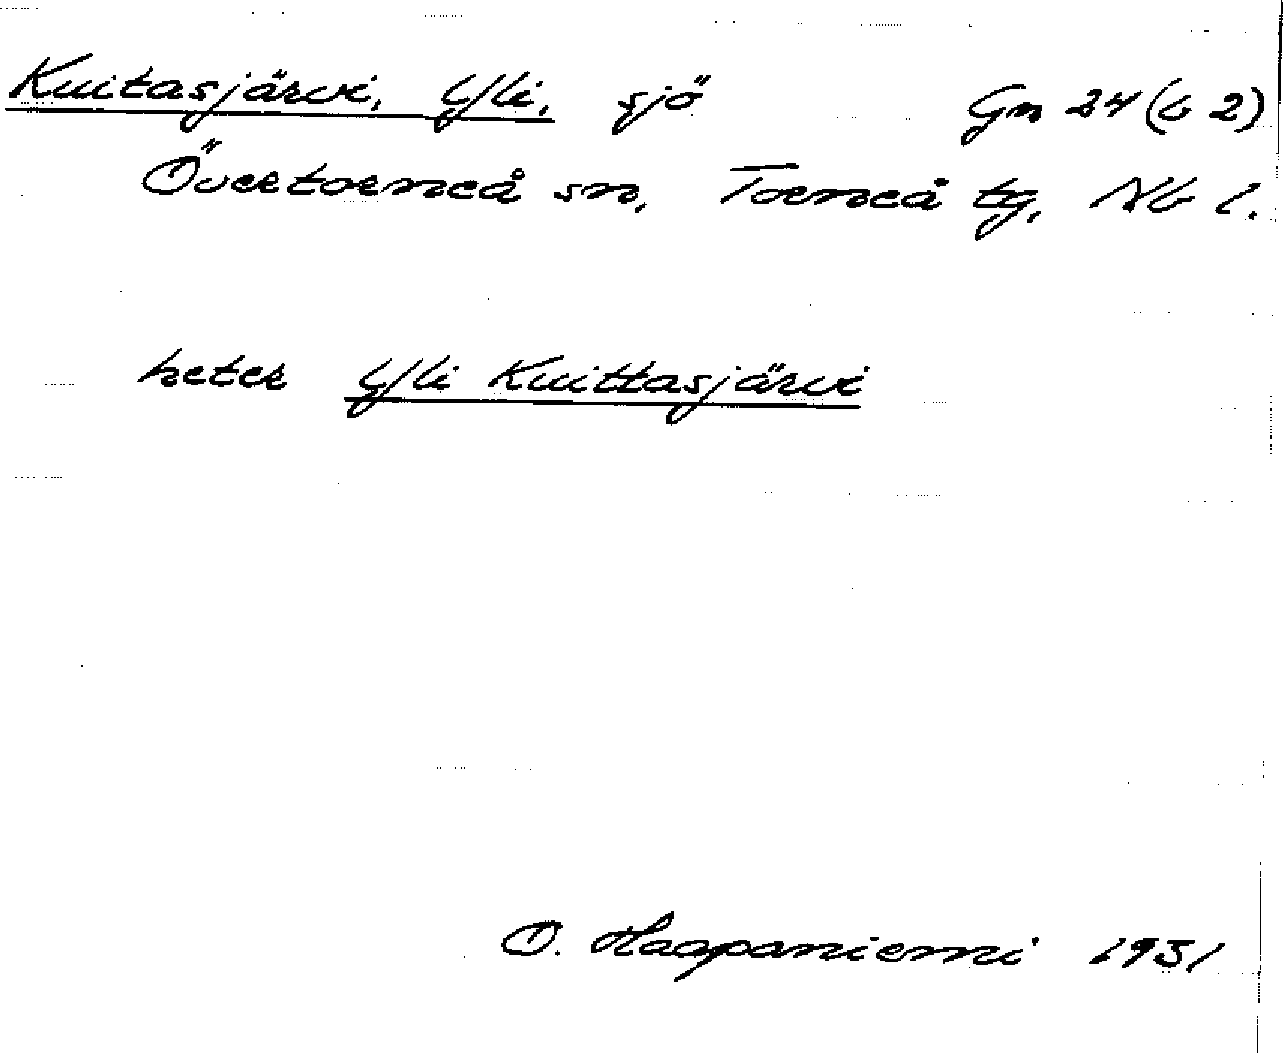 Kuitasjärvi, Yli, sjö Gm 24 (b 2)
Övertorneå sn, Torneå tg, Nb l.
heter Yli Kuittasjärvi
O. Haapaniemi 1931